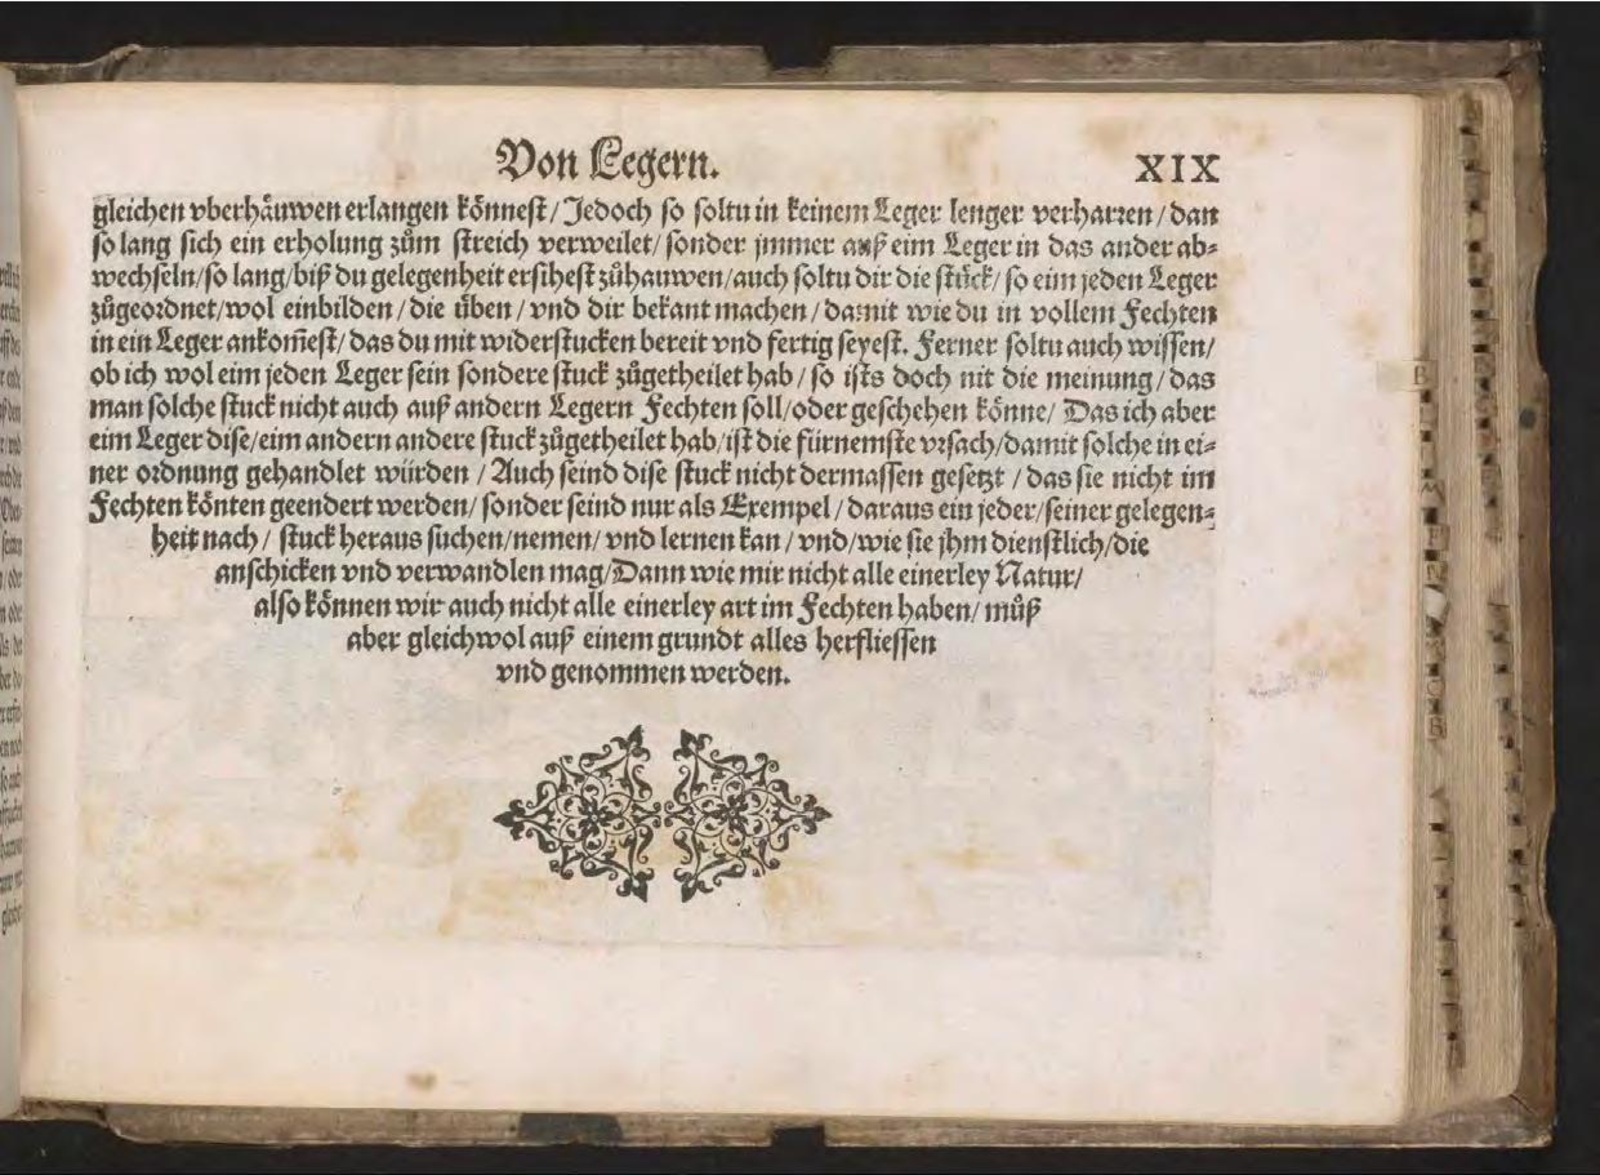 Von Legern.
XIX
gleichen vberhåuwen erlangen kônnest / Jedoch so soltu in keinem Leger lenger verharren / dan
so lang sich ein erholung zům streich verweilet / sonder jmmer auß eim Leger in das ander ab-
wechseln / so lang / biß du gelegenheit ersihest zůhauwen / auch soltu dir die stuͤck / so eim jeden Leger
zůgeordnet / wol einbilden / die uͤben / vnd dir bekant machen / damit wie du in vollem Fechten
in ein Leger ankom̃est / das du mit widerstucken bereit vnd fertig seyest. Ferner soltu auch wissen /
ob ich wol eim jeden Leger sein sondere stuck zůgetheilet hab / so ists doch nit die meinung / das
man solche stuck nicht auch auß andern Legern Fechten soll / oder geschehen koͤnne / Das ich aber
eim Leger dise / eim andern andere stuck zůgetheilet hab / ist die fuͤrnemste vrsach / damit solche in ei-
ner ordnung gehandlet wuͤrden / Auch seind dise stuck nicht dermassen gesetzt / das sie nicht im
Fechten koͤnten geendert werden / sonder seind nur als Exempel / daraus ein jeder / seiner gelegen-
heit nach / stuck heraus suchen / nemen / vnd lernen kan / vnd / wie sie jhm dienstlich / die
anschicken vnd verwandlen mag / Dann wie mir nicht alle einerley Natur /
also koͤnnen wir auch nicht alle einerley art im Fechten haben / můß
aber gleichwol auß einem grundt alles herfliessen
vnd genommen werden.